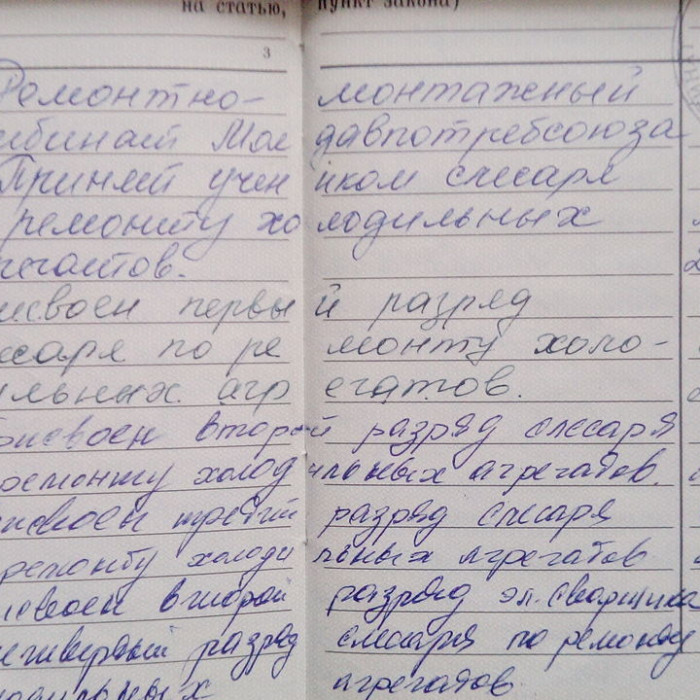 на статью, пункт закона)
3
Ремонтно- монтажный
бинат Мос давпотребсоюза
Принят учен иком слесаря
ремонту хо лодильных
регатов.
исвоен первы й разряд
есаря по ре монту холо-
ильных агр егатов.
рисвоен второ й разряд слесаря
ремонту холод ильных агрегатов.
исвоен третий разряд слесаря
ремонту холоди льных агрегатов
исвоен второй разряд эл. сварщика
четвертый разряд слесаря по ремонту
лодильных агрегатов.